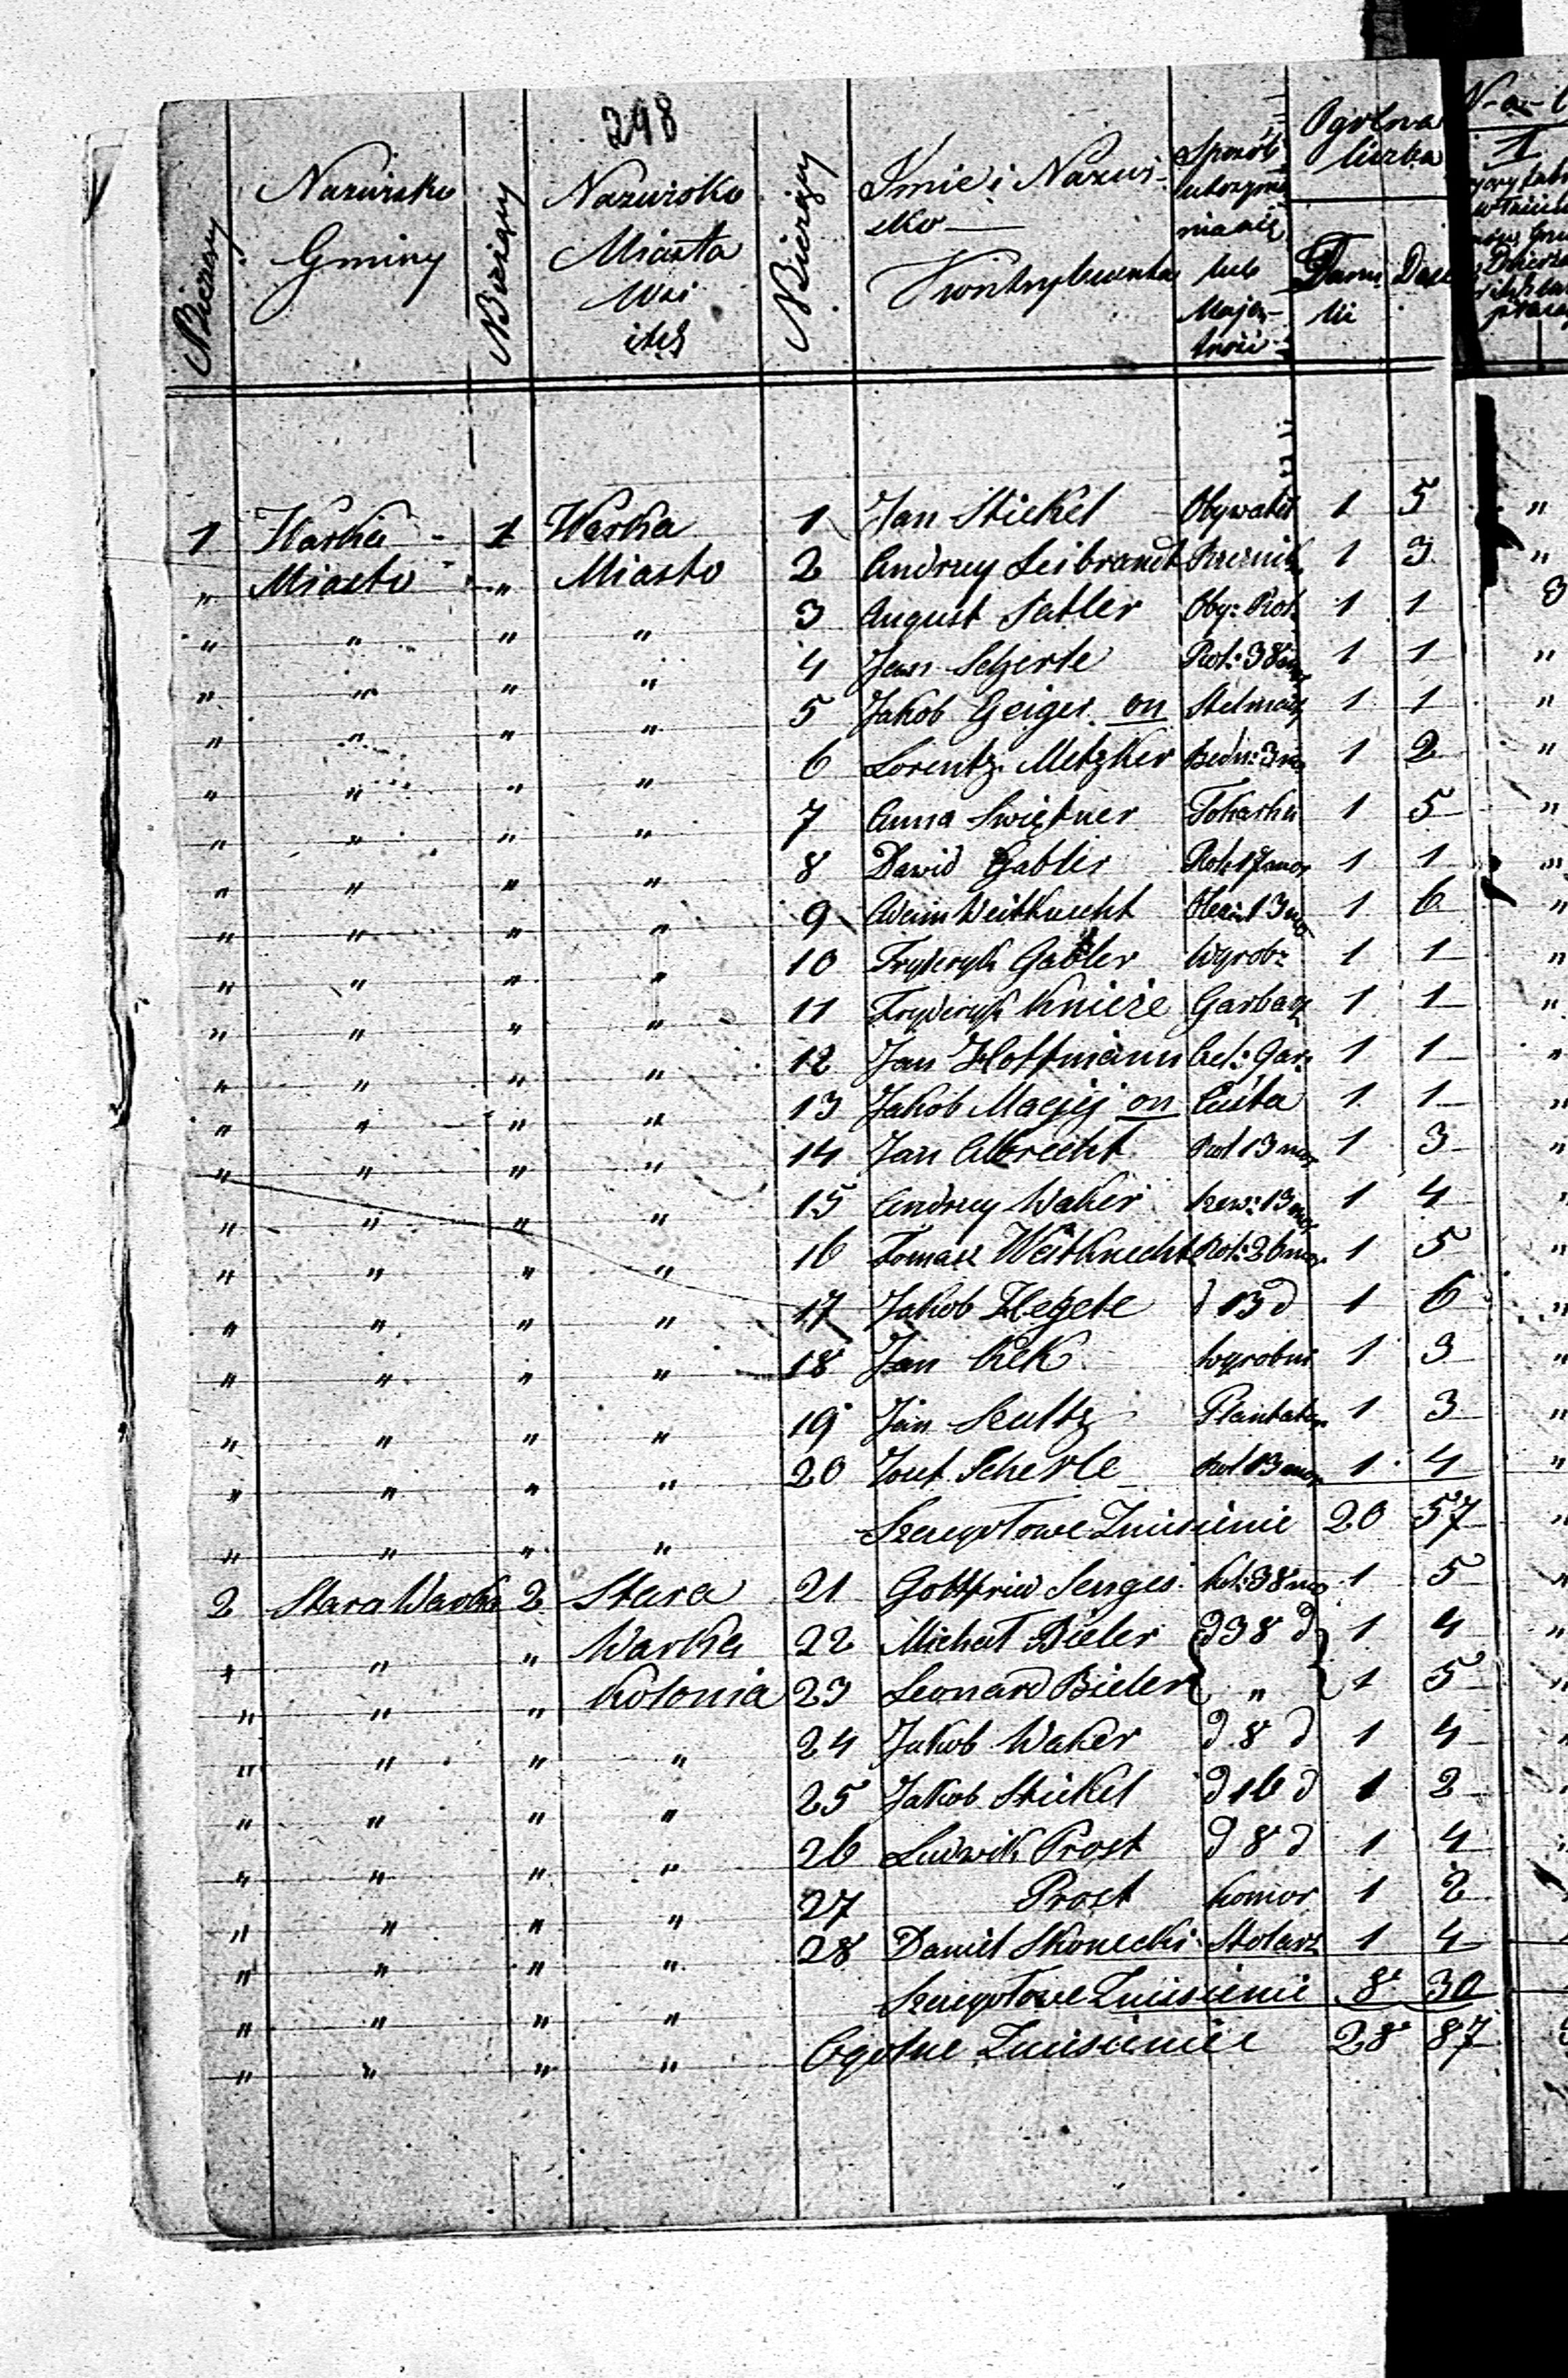 248
N Bieżący
Nazwisko Gminy
N Bieżący
Nazwisko Miasta Wsi itd
N Bieżący
Imie i Nazwisko Kontrybuenta
Sposób utrzymania lub Majętności
Ogólna liczba
Familii
Dusz
1 Warka 1 Warka 1 Jan Stickel Obywatel 1 5 "
" Miasto " Miasto 2 Andrzey Leibrandt 1 3 "
" " " " 3 August Satler Oby: Rol: 1 1 3
" " " " 4 Jan Scherle Rol: 38 mor 1 1 "
" " " " 5 Jakob Geiger on Stelmach 1 1 "
" " " " 6 Lorentz Metzker Bedn: 3 mo 1 2 "
" " " " 7 Anna Swietner Tokarka 1 5 "
" " " " 8 Dawid Gabler Rol: 17 mor 1 1 "
" " " " 9 Adam Weitknecht 13 mo 1 6 "
" " " " 10 Fryderyk Gabler Wyrob: 1 1 "
" " " " 11 Fryderyk Knieze Garbarz 1 1 "
" " " " 12 Jan Hoffmann Czel: Gar: 1 1 "
" " " " 13 Jakob Maejej on Cieśla 1 1 "
" " " " 14 Jan Albrecht Rol 13 mor 1 3 "
" " " " 15 Andrzey Waker Szew: 13 mor 1 4 "
" " " " 16 Tomasz Weitknecht Rol: 26 mor 1 5 "
" " " " 17 Jakob Hegele d 13 d 1 6 "
" " " " 18 Jan Wyrobni 1 3 "
" " " " 19 Jan Scultz Plantator 1 3 "
" " " " 20 Jozef Scherle Rol 13 mor 1 4 "
" " " " Szczegołowe Zniesienie 20 57 "
2 Stara Warka 2 Stara 21 Gottfried Senges Rol: 38 mo 1 5 "
" " " Warka 22 Michał Bieler d 38 d 1 4 "
" " " Kolonia 23 Leonard Bieler " 1 5 "
" " " " 24 Jakob Waker d 8 d 1 4
" " " " 25 Jakob Stickel d 16 d 1 2
" " " " 26 Ludwik Prost d 8 d 1 4
" " " " 27 Prost Komor 1 2
" " " " 28 Daniel Skonecki Stolarz 1 4
" " " " Szczegołowe Zniesienie 8 30
" " " " Ogolne Zniesienie 28 87